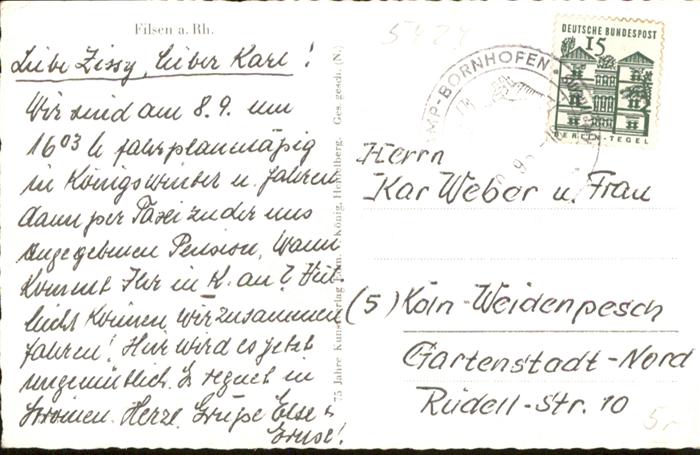 Filsen a. Rh.
Liebe Zissy, lieber Karl!
Wir sind am 8.9. um
16 03 h fahrplanmäßig
in Königswinter u. fahren
dann per Taxi zu der uns
angegebenen Pension, Wann
kommt Ihr in K. an? Viel-
leicht können wir zusammen
fahren! Hier wird es jetzt
ungemütlich. Es regnet in
Strömen. Herzl. Grüße Else &
75 Jahre Kunstverlag Edm. v. König, Heidelberg. Ges. gesch. (N.)
5424
DEUTSCHE BUNDESPOST
15
BERLIN-TEGEL
KAMP-BORNHOFEN
Herrn
Kar Weber u. Frau
(5) Köln-Weidenpesch
Gartenstadt-Nord
Rüdell-Str. 10